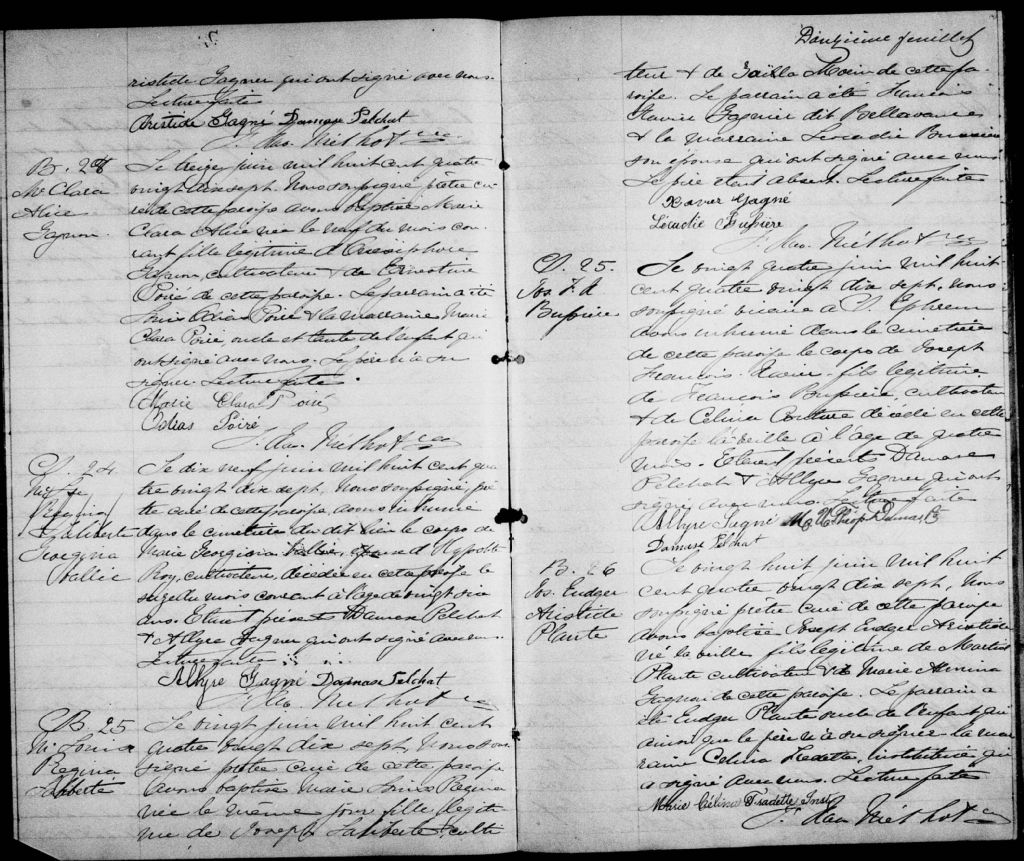 ristide Gagner qui ont signé avec nous.
Lecture faite
Aristide Gagné Damase Pelchat
J. Nap. Méthot
B. 24
Me Clara
Alice
Gagnon.
Le treize juin mil huit cent quatre
vingt dix sept. Nous soussigné prêtre cu
ré de cette paroisse avons baptisé Marie
Clara Alice née le neuf du mois cou
rant fille légitime d'Onésiphore
Gagnon, cultivateur & de Ernestine
Poiré de cette paroisse. Le parrain a été
Odias Poiré & la marraine Marie
Clara Poiré, oncle et tante de l'enfant qui
ont signé avec nous. Le père n'a su
signer. Lecture faite.
Marie Clara Poiré
Odias Poiré
J. Nap. Méthot
S. 24.
Georgina
Vallée
Le dix neuf juin mil huit cent qua
tre vingt dix sept. Nous soussigné, prê
tre curé de cette paroisse, avons inhumé
dans le cimetière du dit lieu le corps de
Marie Georgina Vallée, épouse d'Hypolite
Roy, cultivateur, décédée en cette paroisse le
du mois courant à l'âge de vingt six
ans. Etaient présents Damase Pelchat
& Allyre Gagner qui ont signé avec nous.
Lecture faite
Allyre Gagné Damase Pelchat
J. Nap. Méthot
B. 25
Me Louise
Regina
Laliberté
Le vingt juin mil huit cent
quatre vingt dix sept. Nous sous
signé prêtre curé de cette paroisse
avons baptisé Marie Louise Regina
née le même jour fille légiti
me de Joseph Laliberté, culti
Douzième feuillet
teur & de Morin de cette pa
roisse. Le parrain a été François
Xavier Gagnier dit Bellavance
& la marraine Leocadie Bussière
son épouse qui ont signé avec nous
Le père était absent. Lecture faite
Xavier Gagné
Léocadie Bussière
J. Nap. Méthot
S. 25.
Jos. F. X
Bussière
Le vingt quatre juin mil huit
cent quatre vingt dix sept, nous
soussigné vicaire à S. Ephrem
avons inhumé dans le cimetière
de cette paroisse le corps de Joseph
François-Xavier fils légitime
de François Bussière, cultivateur
& de Celina Couture décédé en cette
paroisse la veille à l'âge de quatre
mois. Etaient présents Damase
Pelchat & Allyre Gagner qui ont
signé avec nous. Lecture faite
Allyre Gagné
Damase Pelchat
B. 26
Jos. Eudger
Aristide
Plante
Le vingt huit juin mil huit
cent quatre vingt dix sept, Nous
soussigné prêtre curé de cette paroisse
avons baptisé Joseph Eudger Aristide
né la veille, fils légitime de Martial
Plante cultivateur & de Marie Almina
Gagnon de cette paroisse. Le parrain a
été Eudger Plante oncle de l'enfant qui
ainsi que le père n'a su signer la mar
raine Celina Fradette, institutrice qui
a signé avec nous. Lecture faite
Marie Célina Fradette Inst.
J. Nap. Méthot